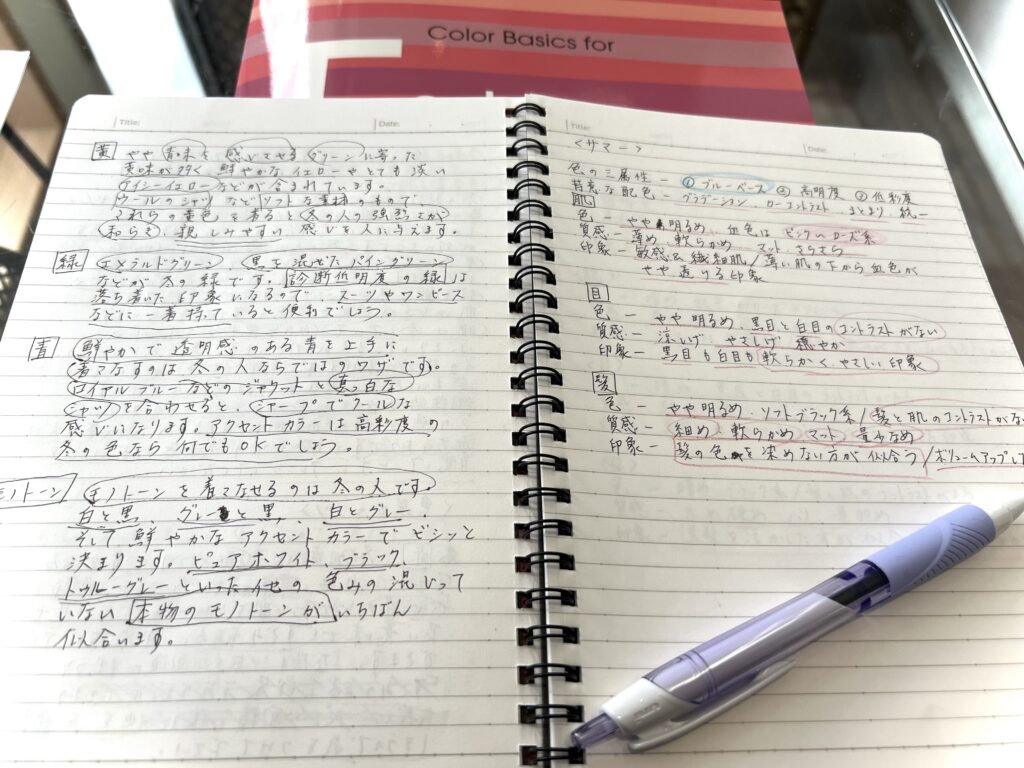 Color Basics for
Title:
Date:
黄 やや青味を感じさせるグリーンに寄った
黄味が多く鮮やかなイエローやとても淡い
アイシーイエローなどが含まれています。
ウールのシャツなどソフトな素材のもので、
これらの黄色を着ると冬の人の強烈さが
和らぎ、親しみやすい感じを人に与えます。
緑 エメラルドグリーン、黒を混ぜたパイングリーン
などが冬の緑です。診断低明度の緑は
落ち着いた印象になるので、スーツやワンピース
などに一着持っていると便利でしょう。
青 鮮やかで透明感のある青を上手に
着こなすのは冬の人ならではのワザです。
ロイアルブルーなどのジャケットと真っ白な
シャツを合わせると、シャープでクールな
感じになります。アクセントカラーは高彩度の
冬の色なら何でもOKでしょう。
モノトーン モノトーンを着こなせるのは冬の人です
白と黒、グレーと黒、白とグレー、
そして鮮やかなアクセントカラーでビシッと
決まります。ピュアホワイト、ブラック、
トゥルーグレーといった他の色みの混じって
いない本物のモノトーンがいちばん
似合います。
Title:
Date:
<サマー>
色の三属性ー ①ブルーベース ②高明度 ③低彩度
得意な配色ー グラデーション、ローコントラスト、まとまり、統一
肌
色 ー やや明るめ、血色はピンク〜ローズ系
質感ー 薄め、軟らかめ、マット、さらさら
印象ー 敏感&繊細肌/薄い肌の下から血色が
やや透ける印象
目
色 ー やや明るめ、黒目と白目のコントラストがない
質感ー 涼しげ、やさしげ、穏やか
印象ー 黒目も白目も軟らかくやさしい印象
髪
色 ー やや明るめ、ソフトブラック系/髪と肌のコントラストがな
質感ー 細め、軟らかめ、マット、量少なめ
印象ー 髪の色を染めない方が似合う/ボリュームアップして